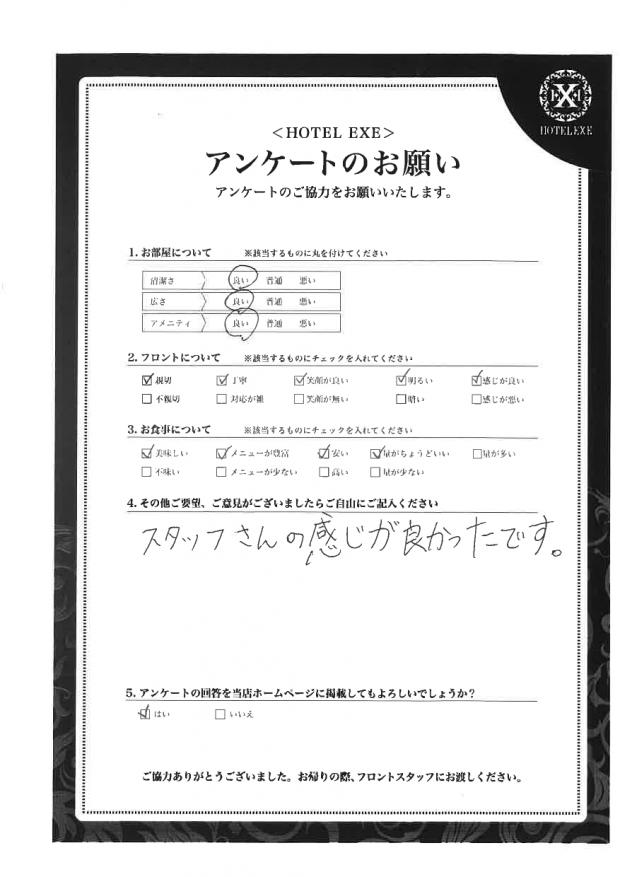 EXE
HOTEL EXE
＜HOTEL EXE＞
アンケートのお願い
アンケートのご協力をお願いいたします。
1. お部屋について ※該当するものに丸を付けてください
清潔さ 良い 普通 悪い
広さ 良い 普通 悪い
アメニティ 良い 普通 悪い
2. フロントについて ※該当するものにチェックを入れてください
☑親切 ☑丁寧 ☑笑顔が良い ☑明るい ☑感じが良い
☐不親切 ☐対応が雑 ☐笑顔が無い ☐暗い ☐感じが悪い
3. お食事について ※該当するものにチェックを入れてください
☑美味しい ☑メニューが豊富 ☑安い ☑量がちょうどいい ☐量が多い
☐不味い ☐メニューが少ない ☐高い ☐量が少ない
4. その他ご要望、ご意見がございましたらご自由にご記入ください
スタッフさんの感じが良かったです。
5. アンケートの回答を当店ホームページに掲載してもよろしいでしょうか？
☑はい ☐いいえ
ご協力ありがとうございました。お帰りの際、フロントスタッフにお渡しください。